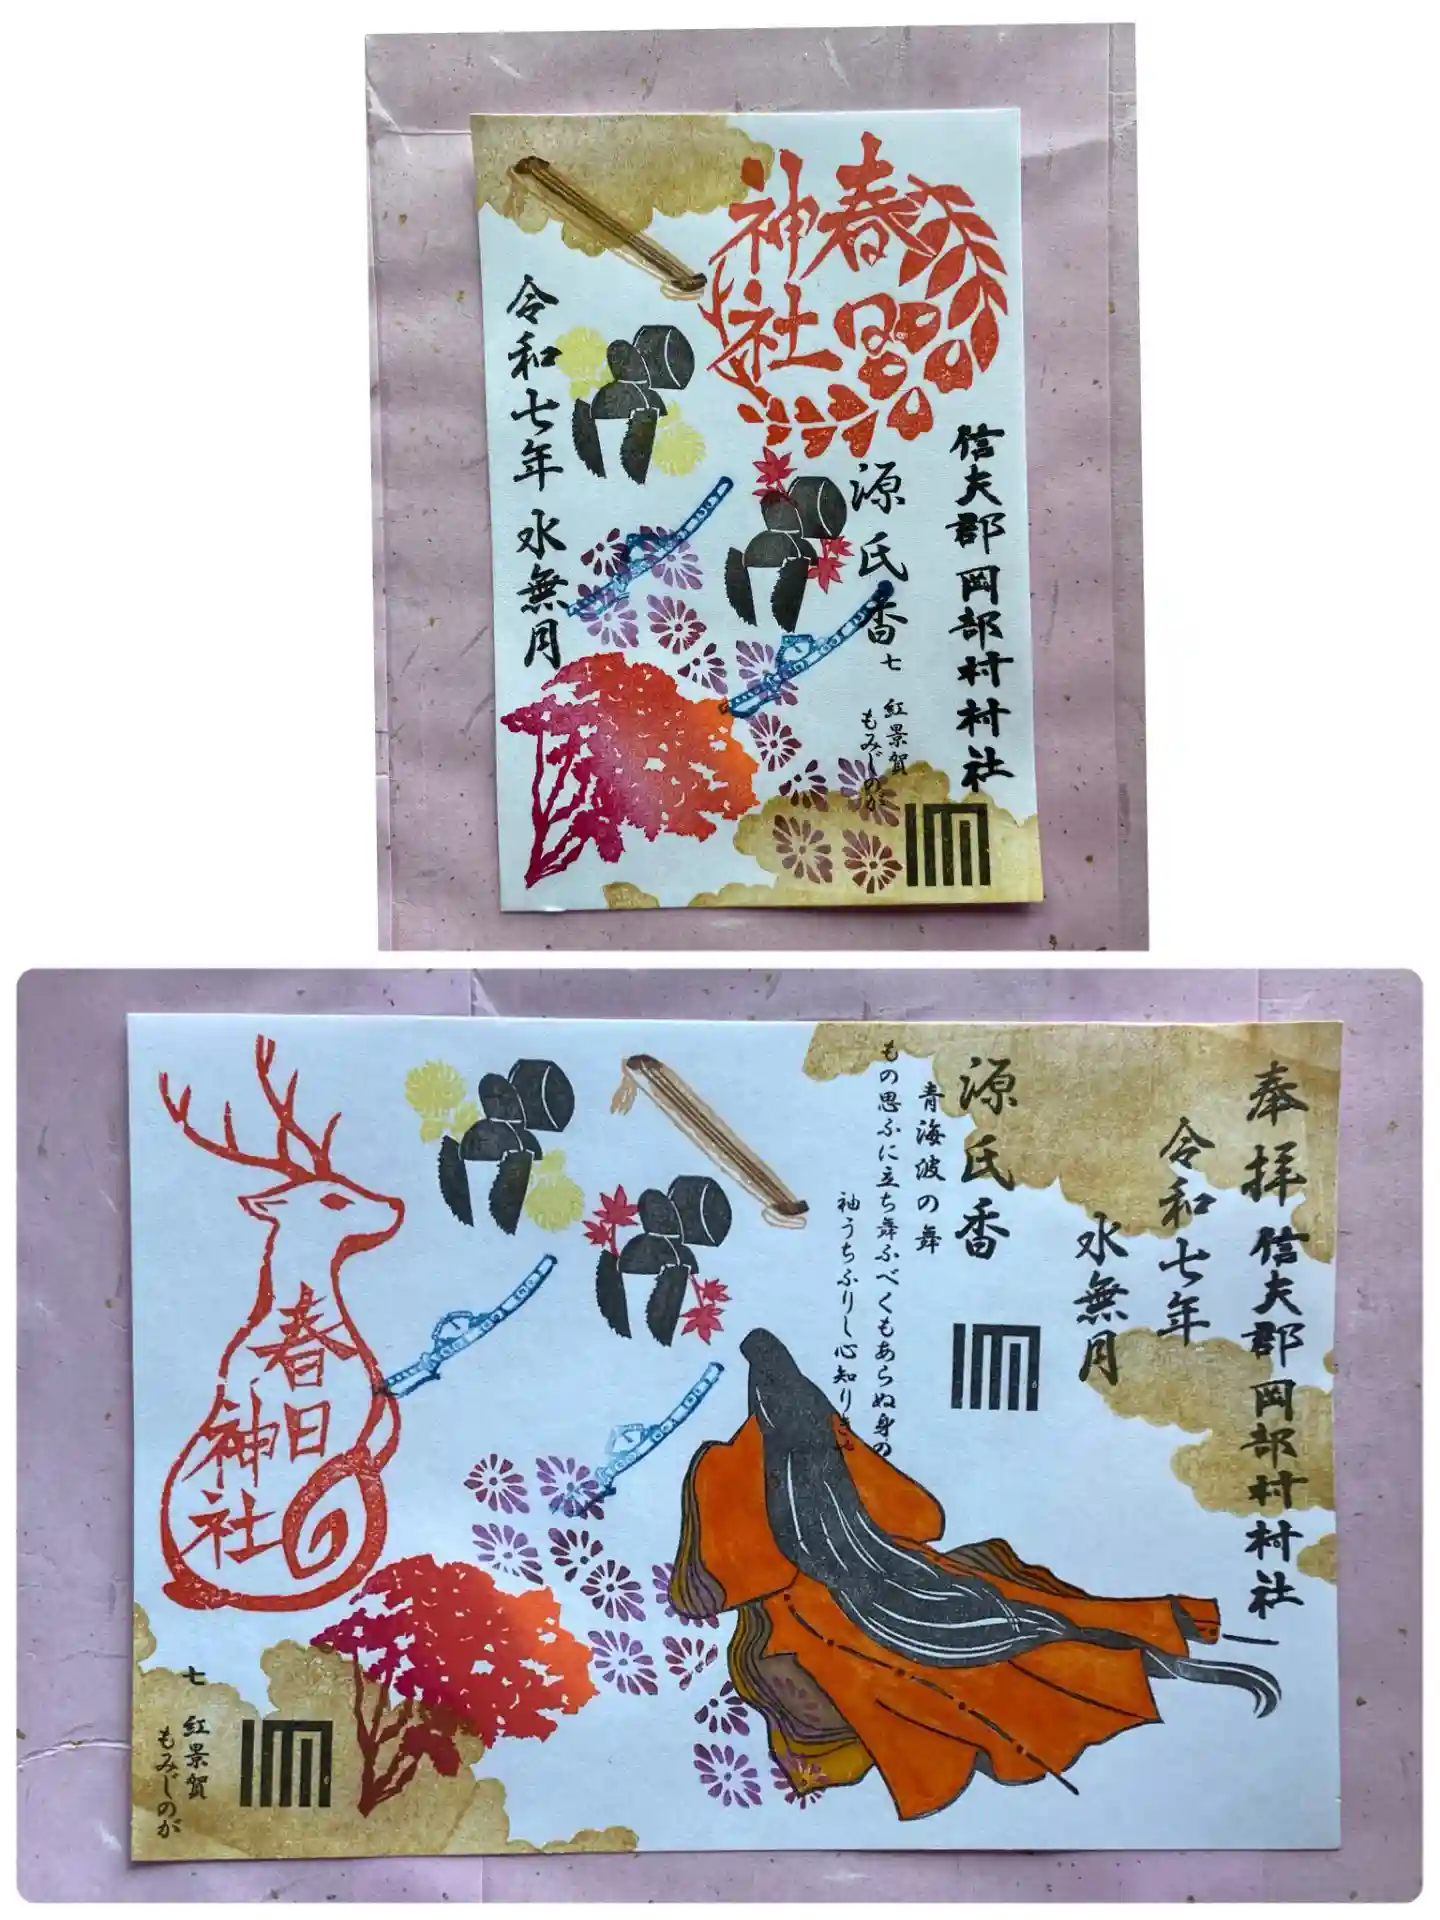 春日
神社
信夫郡岡部村村社
源氏香
七
紅景賀
もみじのが
令和七年
水無月
奉拝
信夫郡岡部村村社
令和七年
水無月
源氏香
青海波の舞
もの思ふに立ち舞ふべくもあらぬ身の
袖うちふりし心知りきや
春日
神社
七
紅景賀
もみじのが